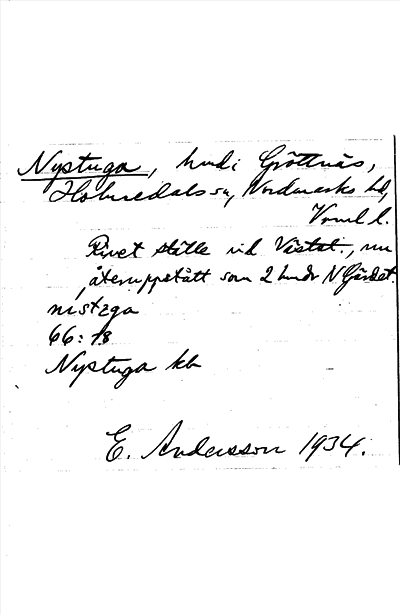 Nystuga, hmd i Gröttnäs,
Holmedals sn, Nordmarks hd,
Vrml l.
Rivet ställe vid Västat., nu
återuppstått som 2 hmdr N Gärdet.
66:78
Nystuga kb
E. Andersson 1934.